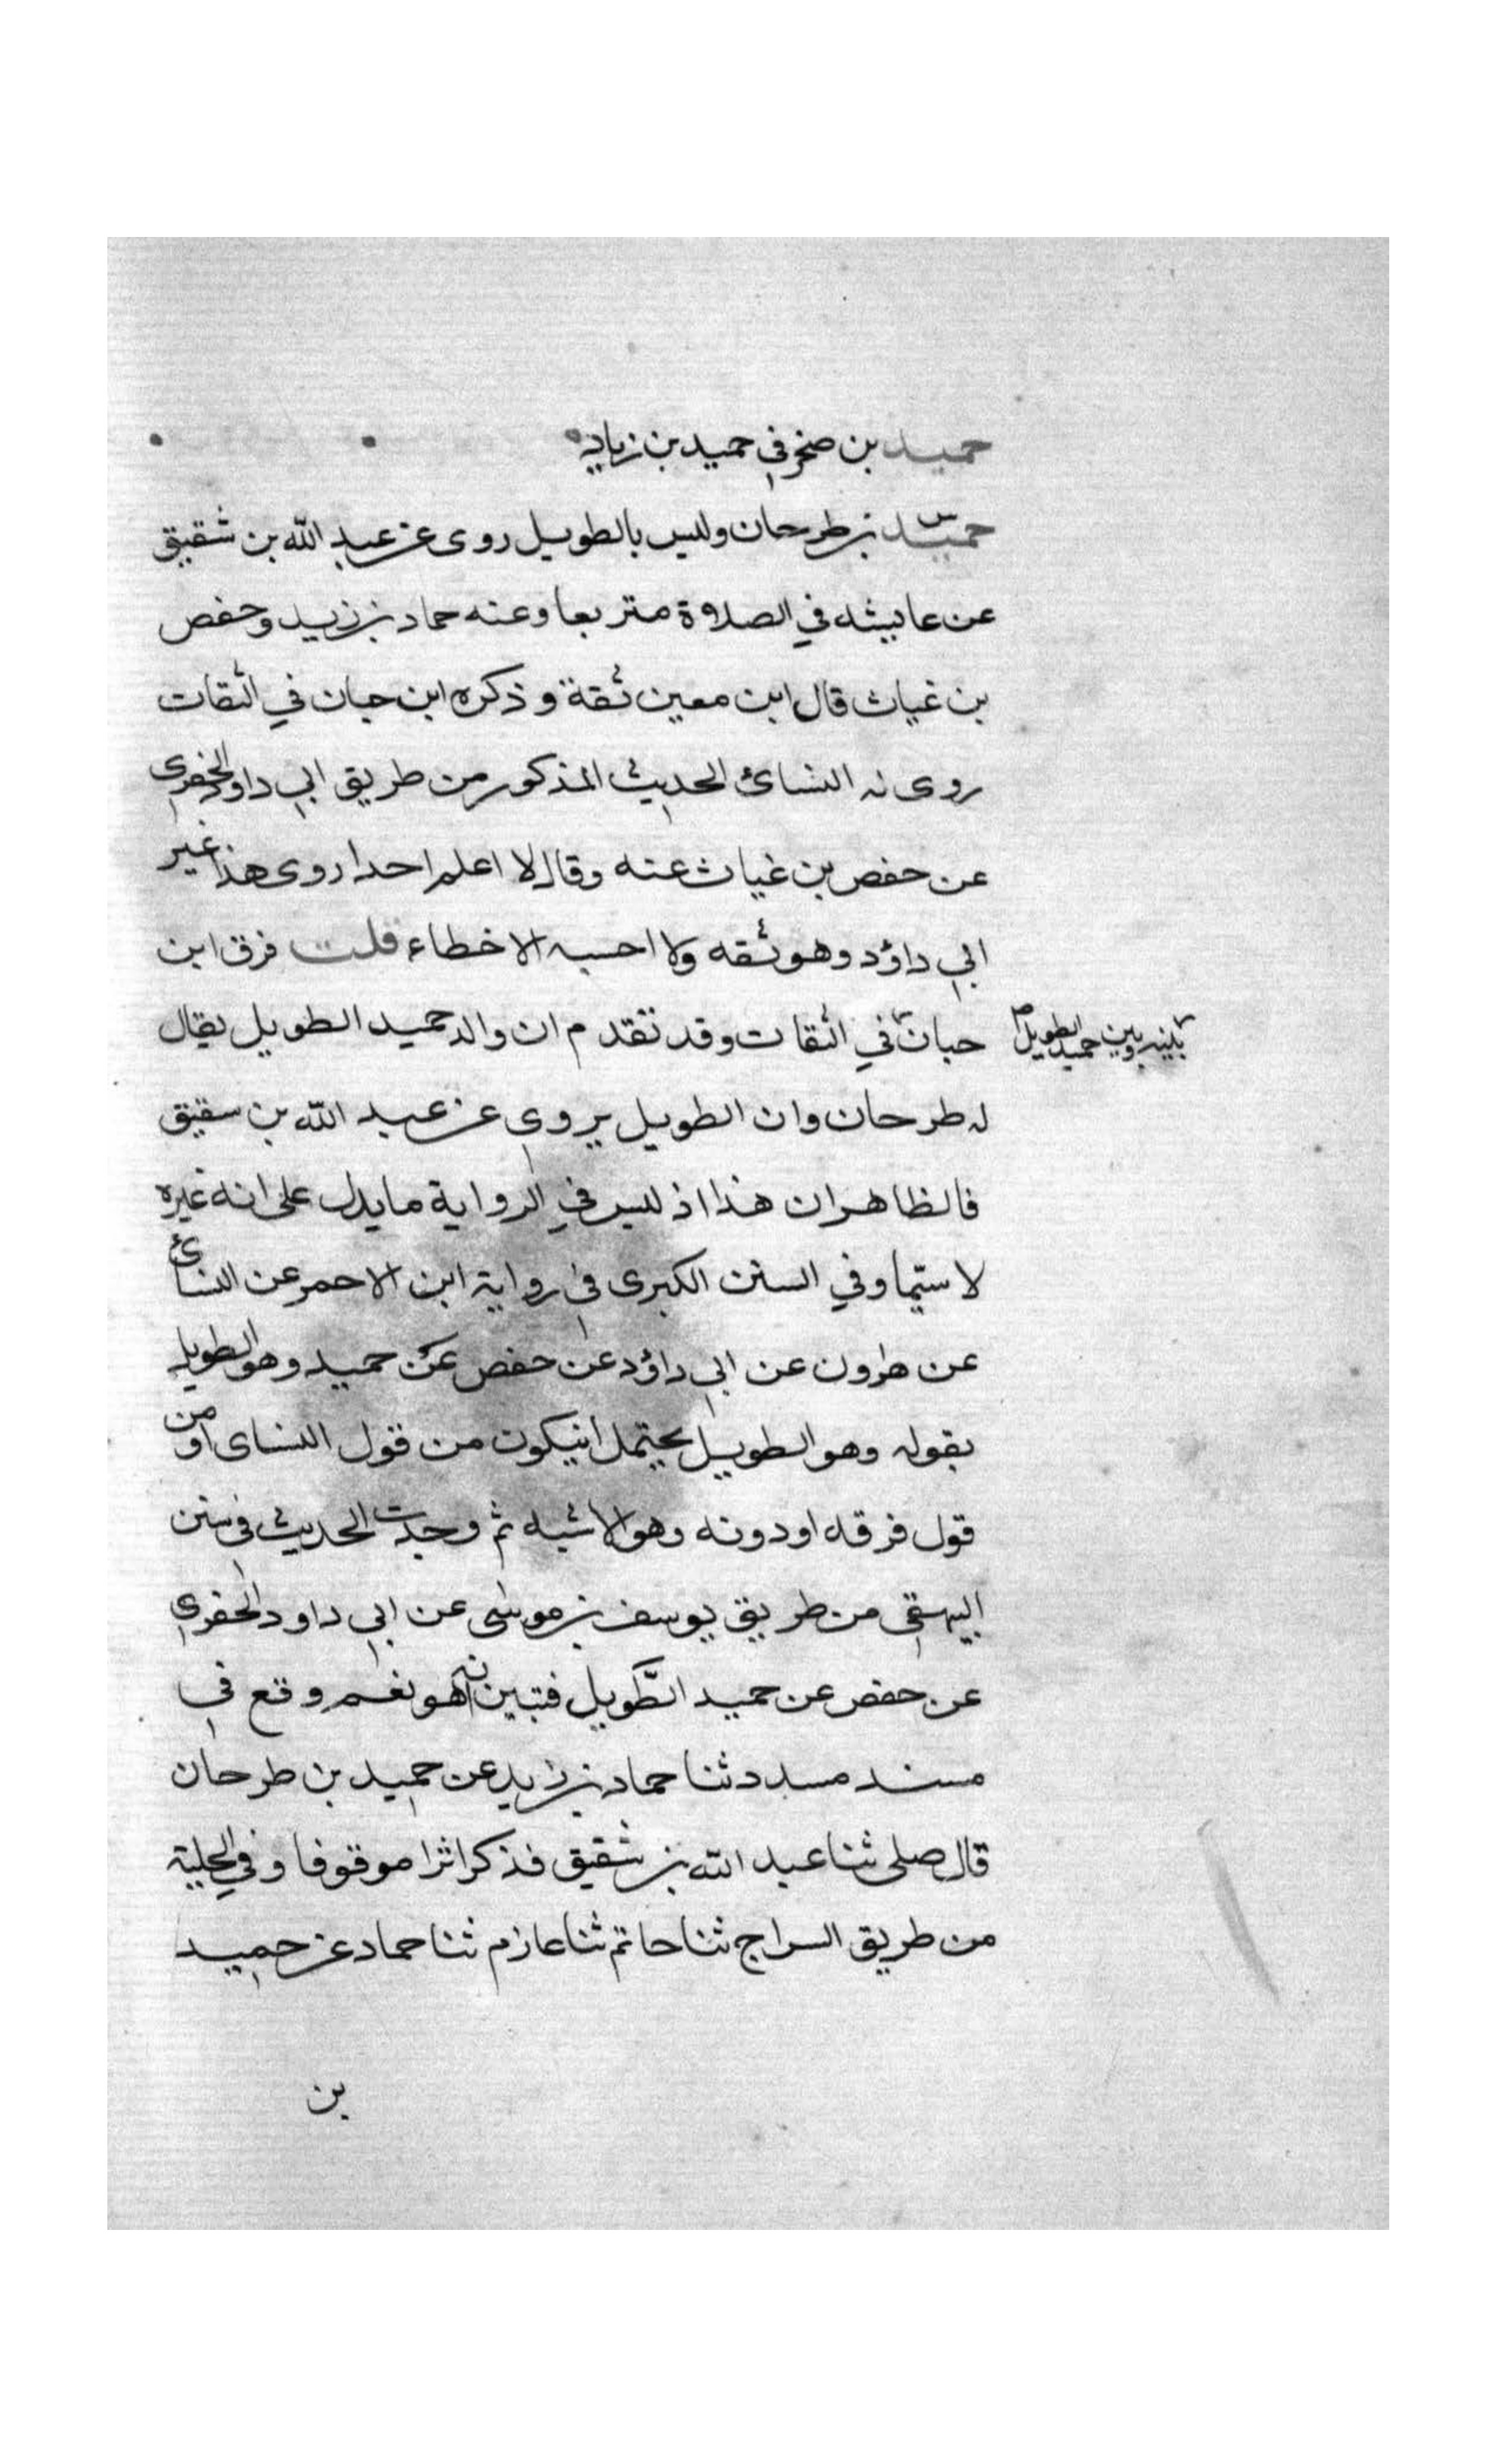 حميد بن صخر في حميد بن زياد
حميد بن طرحان وليس بالطويل روى عن عبد الله بن شقيق
عن عايشه في الصلاوة متربعا وعنه حماد بن زيد وحفص
بن غياث قال ابن معين ثقة وذكره ابن حبان في الثقات
روى له النسائ الحديث المذكور من طريق ابي داود الحفري
عن حفص بن غياث عنه وقال لا اعلم احدا روى هذا غير
ابي داؤد وهو ثقه ولا احسبه الا خطاء قلت فرق ابن
حبان في الثقات وقد تقدم ان والد حميد الطويل يقال
بينه وبين حميد الطويل صح
له طرحان وان الطويل يروي عن عبد الله بن سقيق
فالظاهر ان هذا اذ ليس في الرواية ما يدل على انه غيره
لاسيما وفي السنن الكبرى في رواية ابن الاحمر عن النسائ
عن هرون عن ابي داؤد عن حفص عن حميد وهو الطويل
بقوله وهو الطويل يحتمل انيكون من قول النساى او من
قول فرقه او دونه وهو الاشبه ثم وجدت الحديث في سنن
البيهقي من طريق يوسف بن موسى عن ابي داود الحفري
عن حفص عن حميد الطويل فتبين انه هو نعم وقع في
مسند مسدد ثنا حماد بن زيد عن حميد بن طرحان
قال صلى ثنا عبد الله بن شقيق فذكر اثرا موقوفا وفي الحلية
من طريق السراج ثنا حاتم ثنا عازم ثنا حماد عن حميد
بن